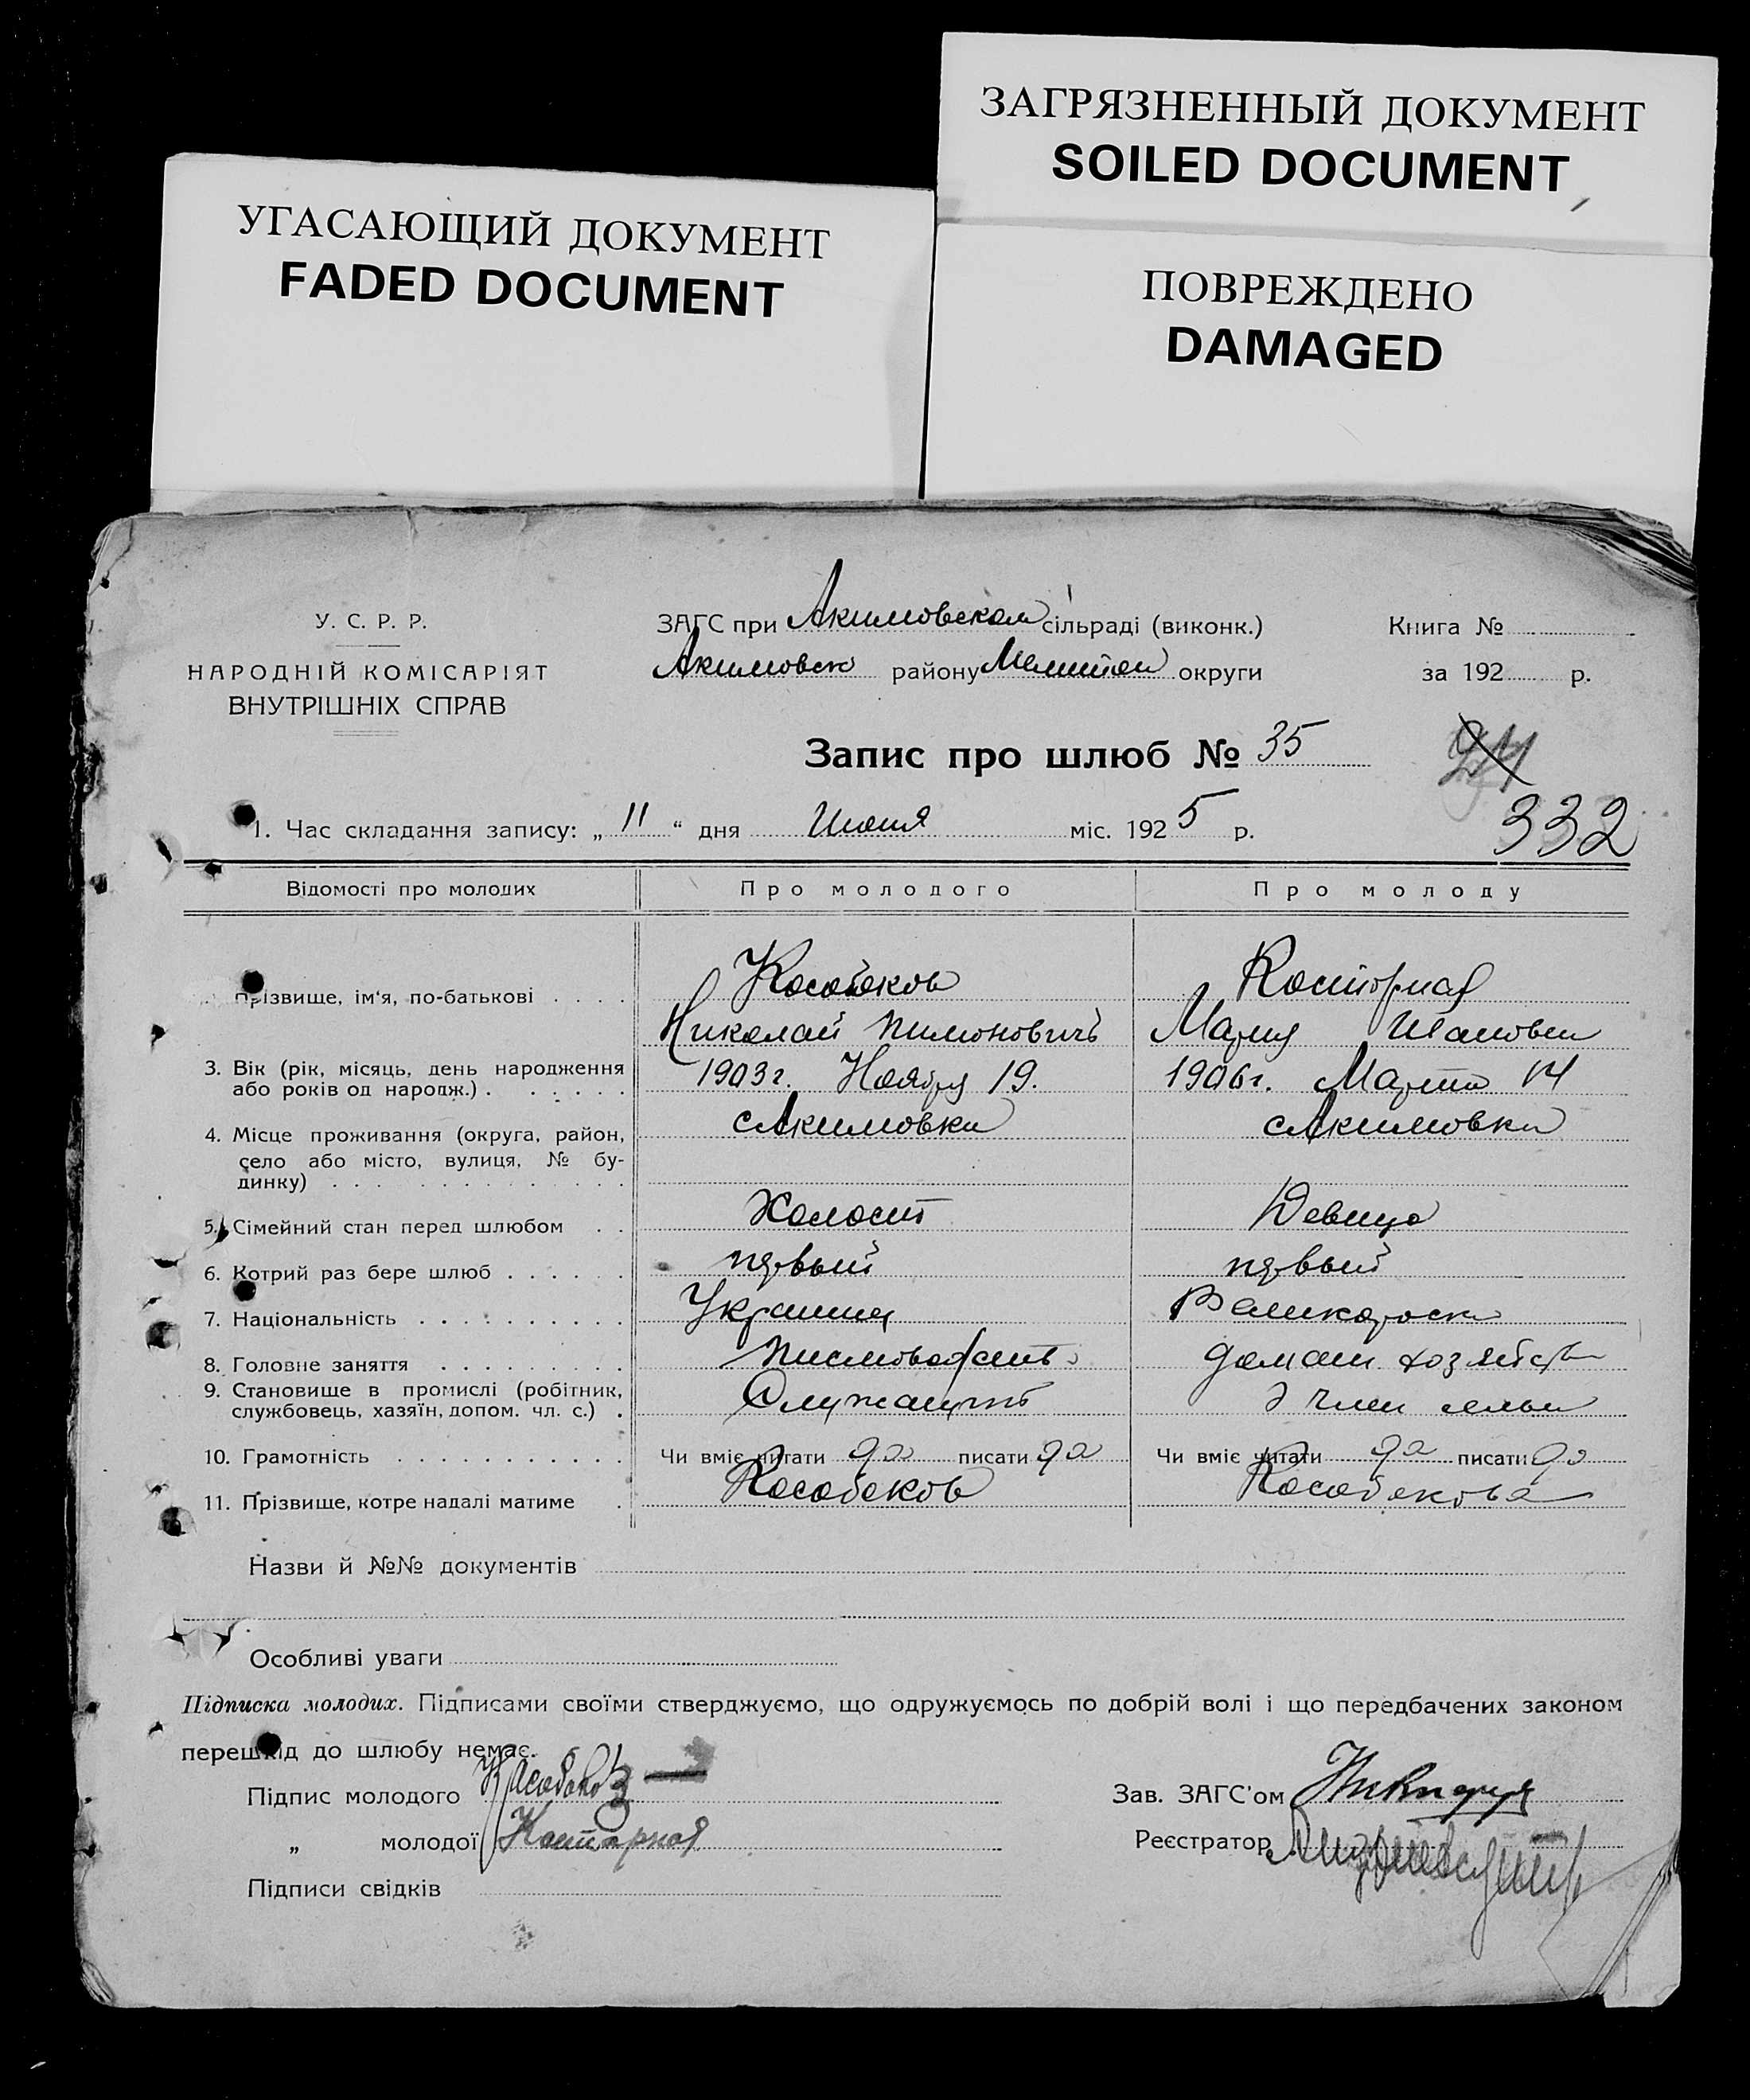 ЗАГРЯЗНЕННЫЙ ДОКУМЕНТ
SOILED DOCUMENT
УГАСАЮЩИЙ ДОКУМЕНТ
FADED DOCUMENT
ПОВРЕЖДЕНО
DAMAGED
У. С. Р. Р.
НАРОДНІЙ КОМІСАРІЯТ
ВНУТРІШНІХ СПРАВ
ЗАГС при Акимовском сільраді (виконк.)
Акимовск району Мелитоп округи
Книга №
за 192 р.
Запис про шлюб № 35
24
332
1. Час складання запису: „ 11 “ дня міс. 1925 р.
Відомості про молодих Про молодого Про молоду
Прізвище, ім‘я, по-батькові Кособоков Косторная
Николай Пимонович Мария
3. Вік (рік, місяць, день народження або років од народж.) 1903 г. Ноября 19. 1906 г. Марта 14
4. Місце проживання (округа, район, село або місто, вулиця, № будинку) с Акимовка с Акимовка
5. Сімейний стан перед шлюбом Холост Девица
6. Котрий раз бере шлюб первый первый
7. Національність Украинец Великоросска
8. Головне заняття домаш хозяйств
9. Становище в промислі (робітник, службовець, хазяїн, допом. чл. с.) Служащий член семьи
10. Грамотність Чи вміє читати да писати да Чи вміє читати да писати да
11. Прізвище, котре надалі матиме Кособоков Кособокова
Назви й №№ документів
Особливі уваги
Підписка молодих. Підписами своїми стверджуємо, що одружуємось по добрій волі і що передбачених законом
перешкід до шлюбу немає.
Підпис молодого Кособоков
Зав. ЗАГС’ом
„ молодої Косторная
Реєстратор
Підписи свідків